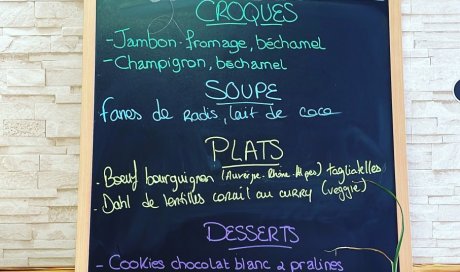 CROQUES
- Jambon-fromage, béchamel
- Champignon, béchamel
SOUPE
fanes de radis, lait de coco
PLATS
- Bœuf bourguignon (Auvergne-Rhône-Alpes) tagliatelles
- Dahl de lentilles corail au curry (veggie)
DESSERTS
- Cookies chocolat blanc & pralines